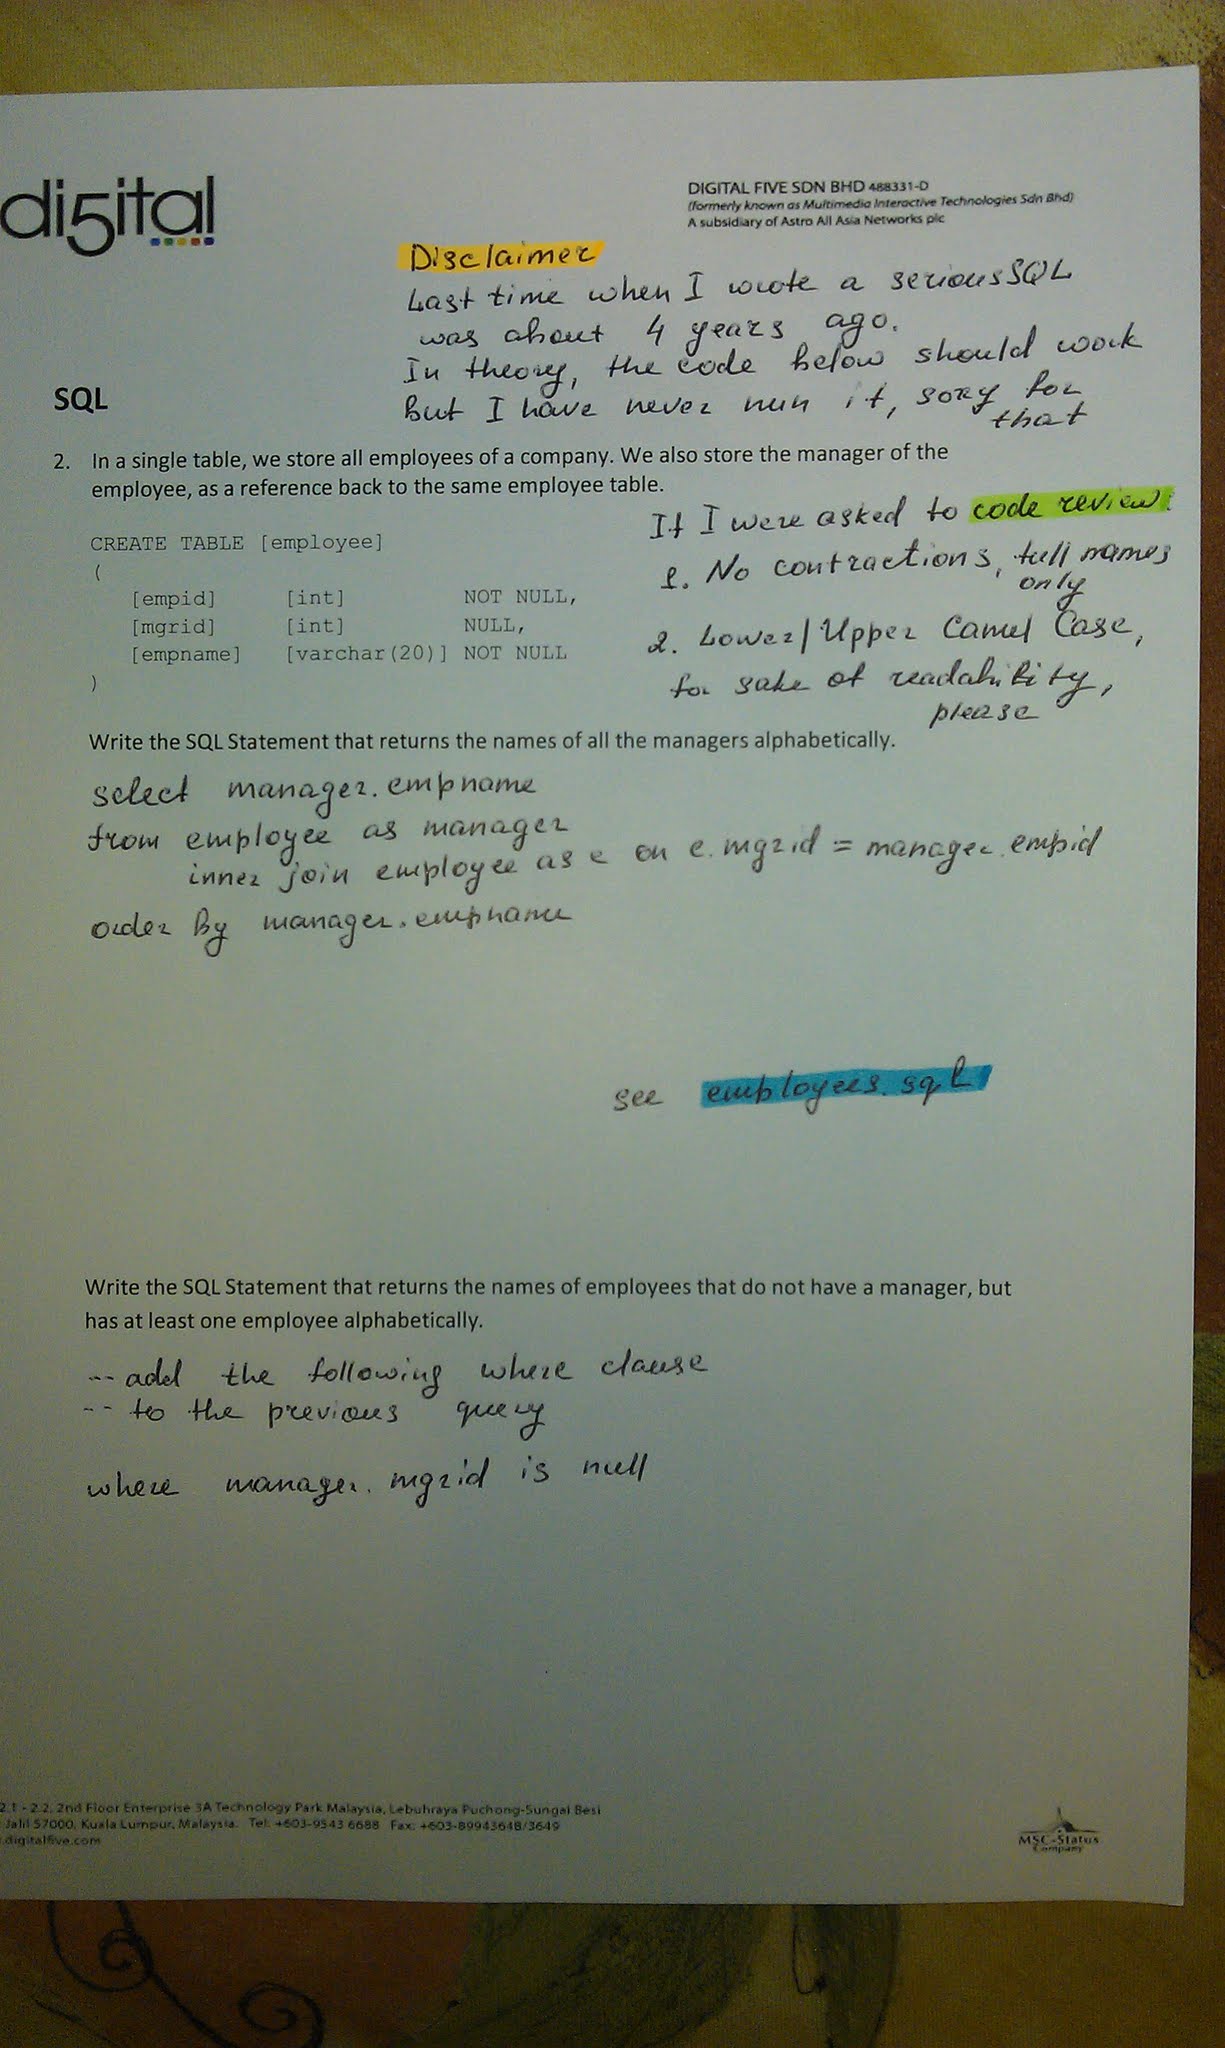 di5ital
DIGITAL FIVE SDN BHD 488331-D
(formerly known as Multimedia Interactive Technologies Sdn Bhd)
A subsidiary of Astro All Asia Networks plc
Disclaimer
Last time when I wrote a serious SQL
was about 4 years ago.
In theory, the code below should work
But I have never run it, sory for
that
SQL
2. In a single table, we store all employees of a company. We also store the manager of the
employee, as a reference back to the same employee table.
If I were asked to code review:
1. No contractions, full names
only
2. Lower/Upper Camel Case,
for sake of readability,
please
CREATE TABLE [employee]
(
[empid] [int] NOT NULL,
[mgrid] [int] NULL,
[empname] [varchar(20)] NOT NULL
)
Write the SQL Statement that returns the names of all the managers alphabetically.
select manager.empname
from employee as manager
inner join employee as e on e.mgrid = manager.empid
order by manager.empname
see employees.sql
Write the SQL Statement that returns the names of employees that do not have a manager, but
has at least one employee alphabetically.
-- add the following where clause
-- to the previous query
where manager.mgrid is null
2.1 - 2.2, 2nd Floor Enterprise 3A Technology Park Malaysia, Lebuhraya Puchong-Sungai Besi
Jalil 57000, Kuala Lumpur, Malaysia. Tel: +603-9543 6688 Fax: +603-89943648/3649
.digitalfive.com
MSC-Status
Company